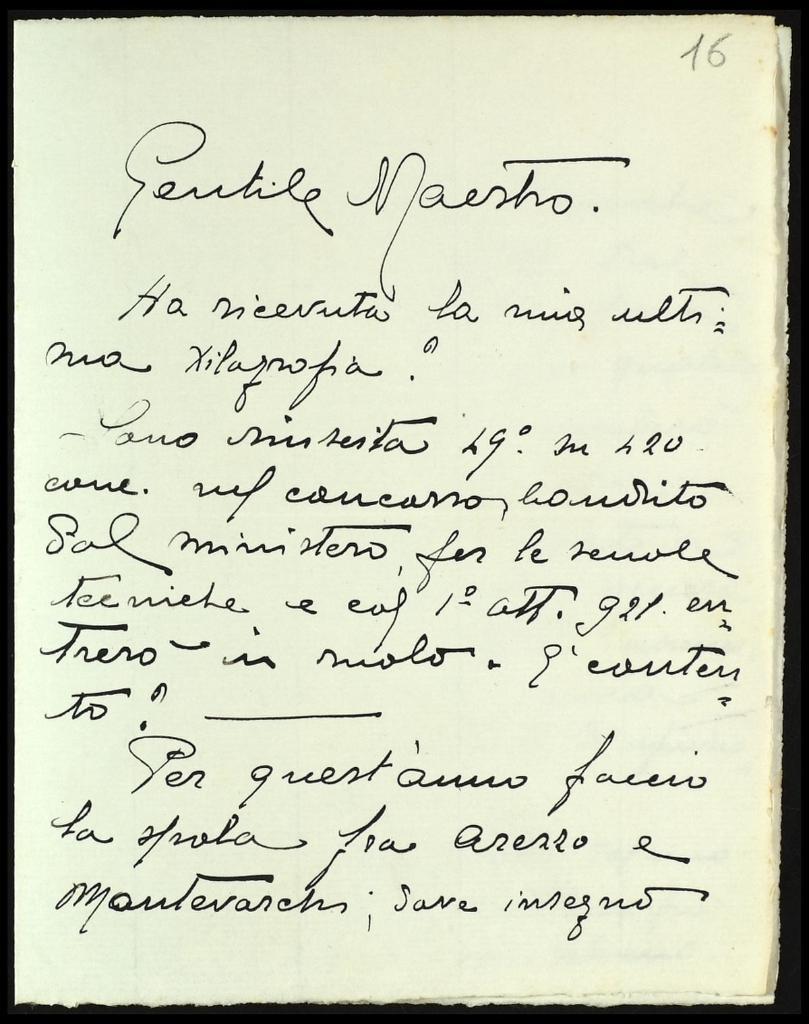 16
Gentile Maestro.
Ha ricevuta la mia ulti=
ma xilografia?
– Sono riuscita 49º. su 420
conc. nel concorso, bandito
dal ministero, per le scuole
tecniche e col 1º ott. 921. en=
trerò in ruolo. È conten=
to? —
Per quest'anno faccio
la spola fra Arezzo e
Montevarchi; dove insegno